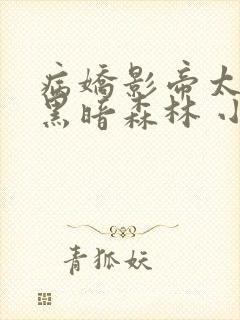 病嬌影帝太
黑暗森林 小
青狐妖